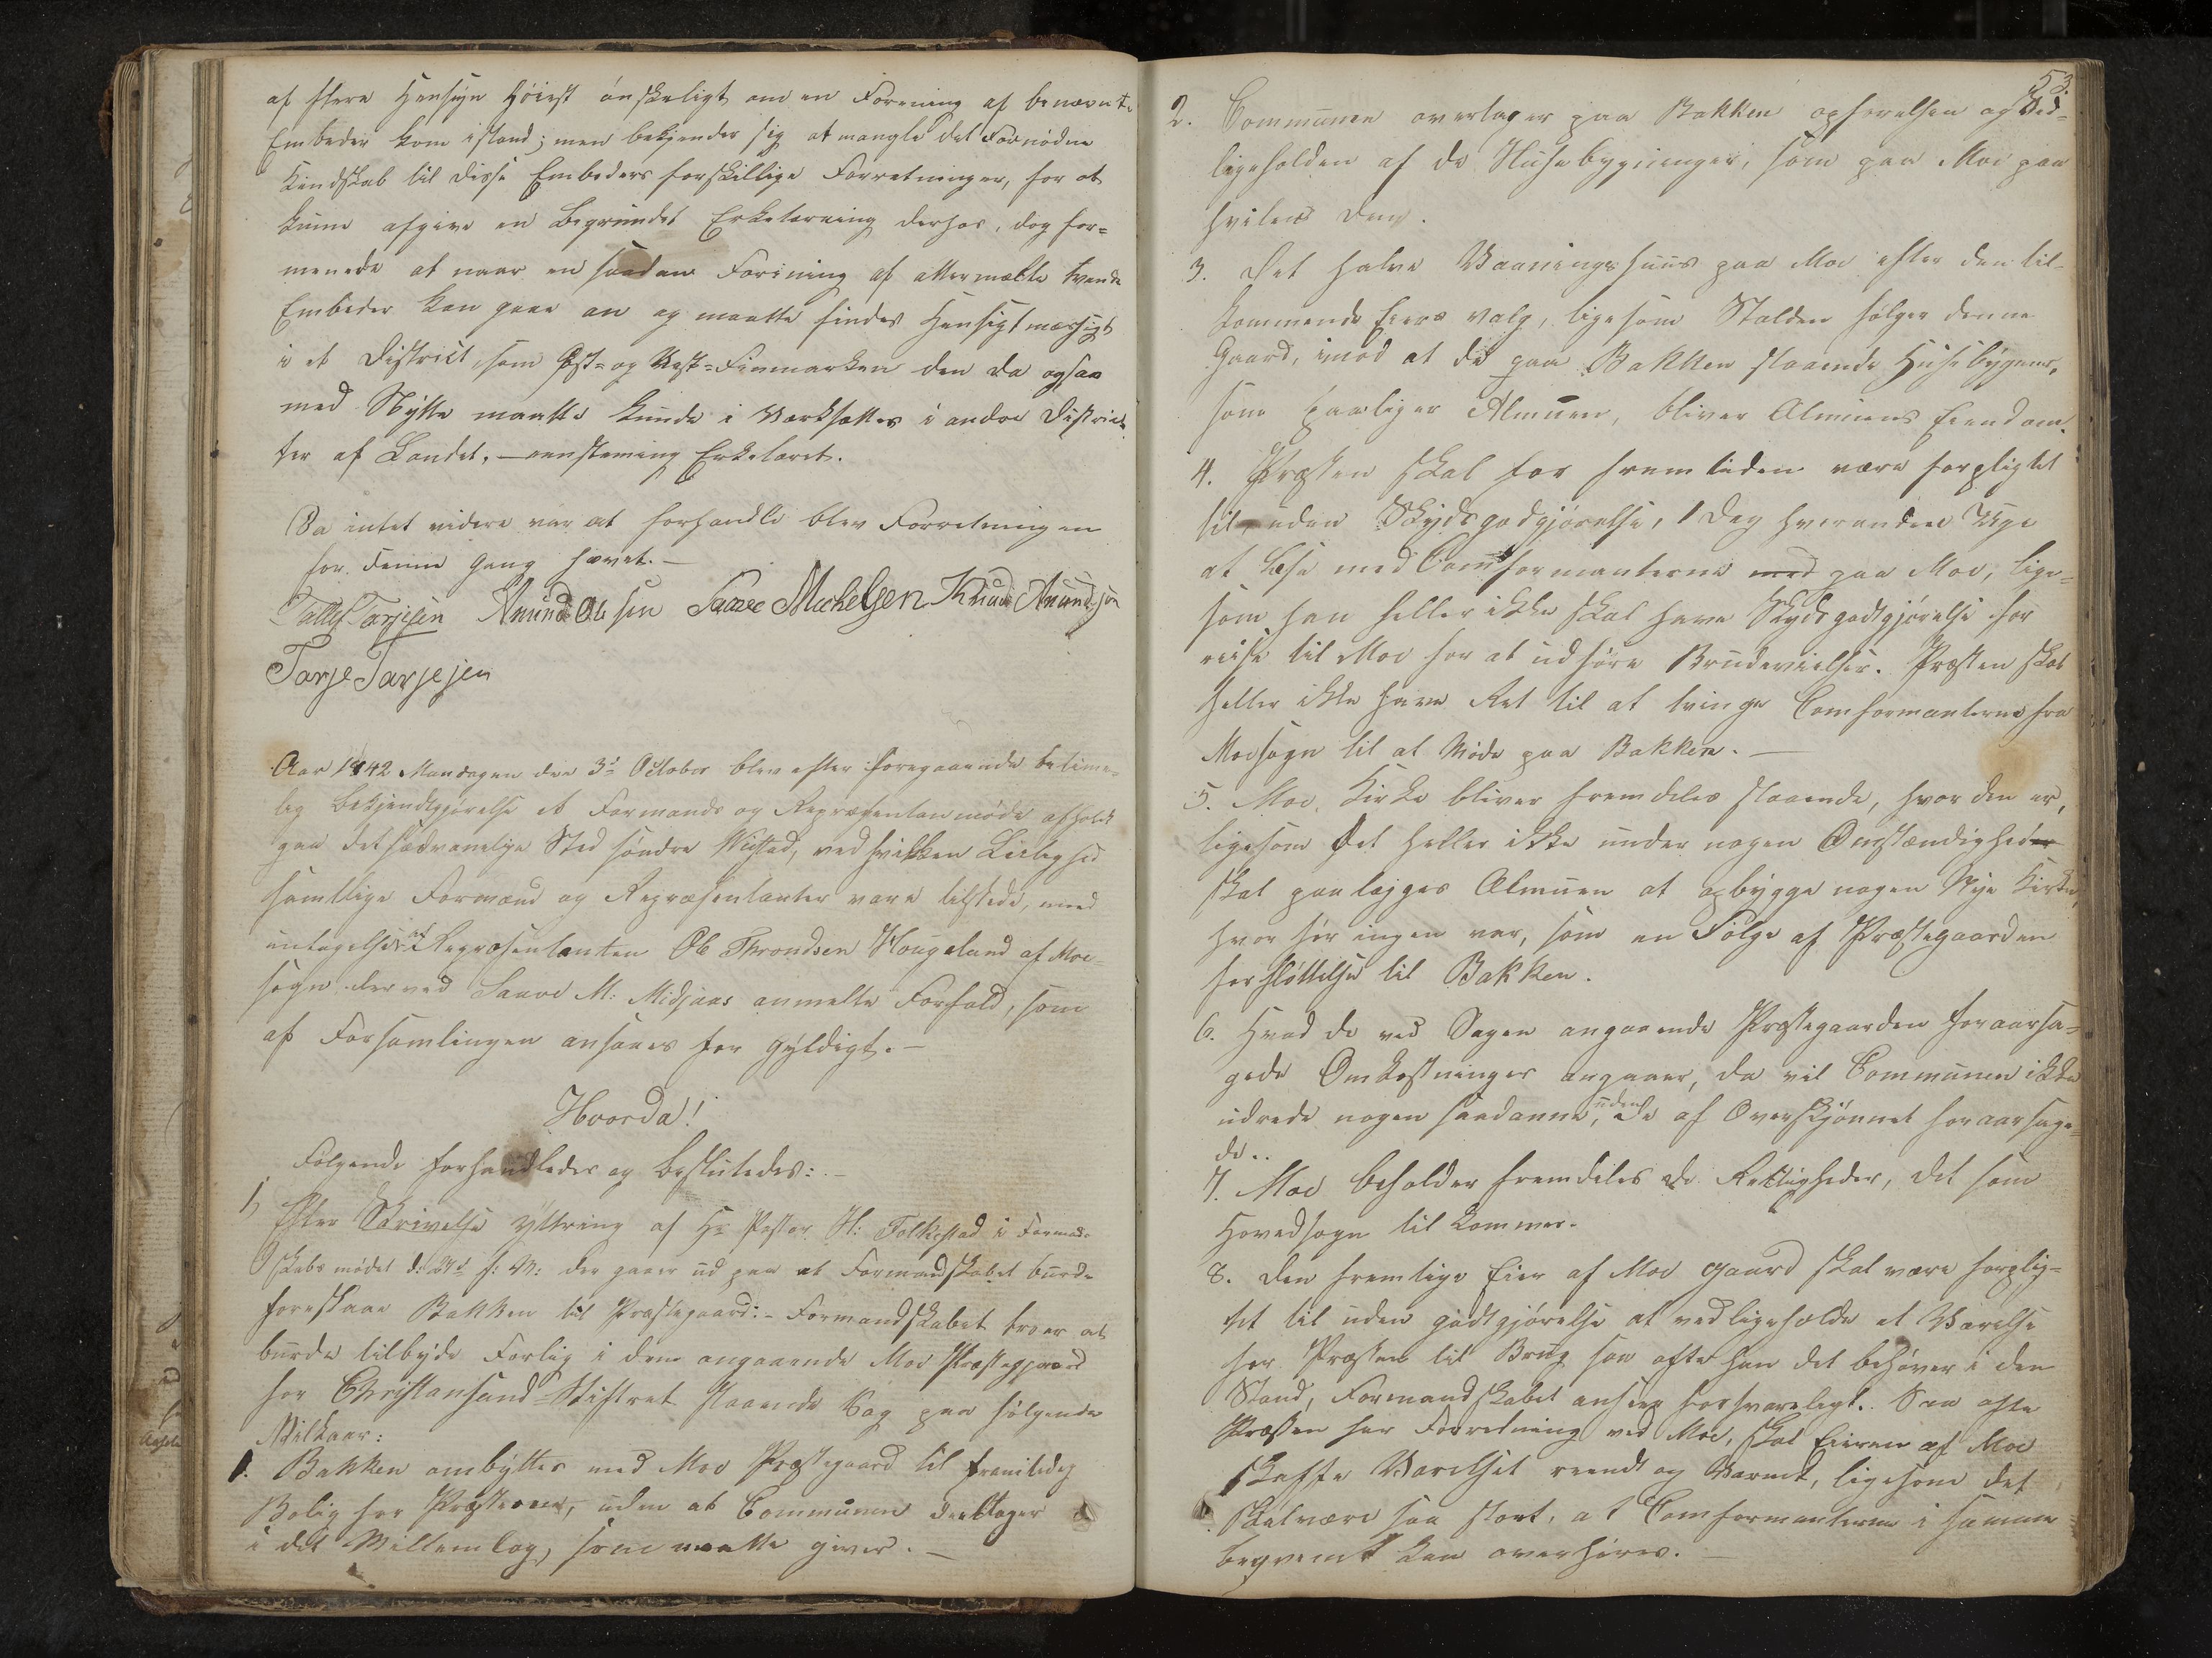 af flere Hensyn høiest ønskeligt om en Forening af benævnte
Embeder kom istand; men bekjender sig at mangle det Fornødne
Kundskab til disse Embeders forskillige Forretninger, for at
kunne afgive en begrundet Erkelærning derhos, dog for=
menede at naar en saadan Forening af attermælte tvende
Embeder kan gaae an og maatte findes Hensigtmæssigt
i et District som Øst= og Vest=Finmarken den da ogsaa
med Nytte maatte kunde i Værksættes i andre Distric
ter af Landet, – eenstemmig Erkelæret.
Da intet videre var at forhandle blev Forretningen
for denne Gang hævet. –
Tallef Tarjesen Amund Olesen Saave Mickelsen Knud Anundsen
Tarje Tarjesen
Aar 1842 Mandagen den 3d October blev efter foregaaende betime=
lig bekjendtgjørelse et Formands og Repræsentanmøde afholdt
paa det sædvanelige Sted søndre Nustad, ved hvilken Leilighed
samtlige Formænd og Repræsentanter vare tilstede, med
untagelse af Repræsentanten Ole Throndsen Hougeland af Moe=
sogn derved Saave M: Midjaas anmelte Forfald, som
af Forsamlingen ansaaes for gyldigt. –
Hvorda!
Følgende forhandledes og besluttedes: –
1, Efter Skrivelse yttring af Hr Pastor H: Folkestad i Formand=
skabs mødet d: f: M: der gaaer ud paa at Formandskabet burde
foreslaae Bakken til Præstegaard: – Formandskabet troer at
burde tilbyde Forlig i den angaaende Moe Præstegaard
for Christiansand=Stiftret staaende Sag paa følgende
Vilkaar:
1. Bakken ombyttes med Moe Præstegaard til fremtidig
Bolig for Præsterne, uden at Communen deeltager
i det Mellemlag, som maatte gives. –
53.
2. Communen overtager paa Bakken opførelsen og Ved=
ligeholden af de Husebygninger, som paa Moe paa
hvilede dem.
3. Det halve Vaaningshuus paa Moe efter den til=
kommende Eiers valg, ligesom Stalden følger denne
Gaard, imod at de paa Bakken staaende Husebygnin,
som paaliger Almuen, bliver Almuens Eiendom.
4. Præsten skal for fremtiden være forpligtet
til uden Skydsgodgjørelse, 1 Dag hverandre Uge
at læse med Comformanterne med paa Moe, lige=
som han heller ikke skal have Skydsgodtgjørelse for
reise til Moe for at udføre Brudevielser. Præsten skal
heller ikke have Ret til at tvinge Comformanterne fra
Moesogn til at møde paa Bakken. –
5. Moe, Kirke bliver fremdeles staaende, hvor den er,
ligesom det heller ikke under nogen Omstændigheder
skal paalægges Almuen at opbygge nogen Nye Kirke,
hvor før ingen var, som en Følge af Præstegaarden
forfløttelse til Bakken.
6. Hvad de ved Sagen angaaende Præstegaarden foraarsa=
gede Omkostninger angaaer, da vil Communen ikke
udrede nogen saadanne, uden de af Overskjønnet foraarsage=
de..
7. Moe beholder fremdeles de Rettigheder, det som
Hovedsogn til kommer.
8. Den fremtige Eier af Moe gaard skal være forplig=
tet til uden godtgjørelse at vedligeholde et Værelse
for Præsten til Brug saa ofte han det behøver i den
Stand, Formandskabet anseer forsvareligt. Saa ofte
Præsten har Forretning ved Moe, skal Eieren af Moe
skaffe Værelset reendt og Varmt, ligesom det
skal være saa stort, at Comformanterne i samme
beqvemt kan overhøres. –